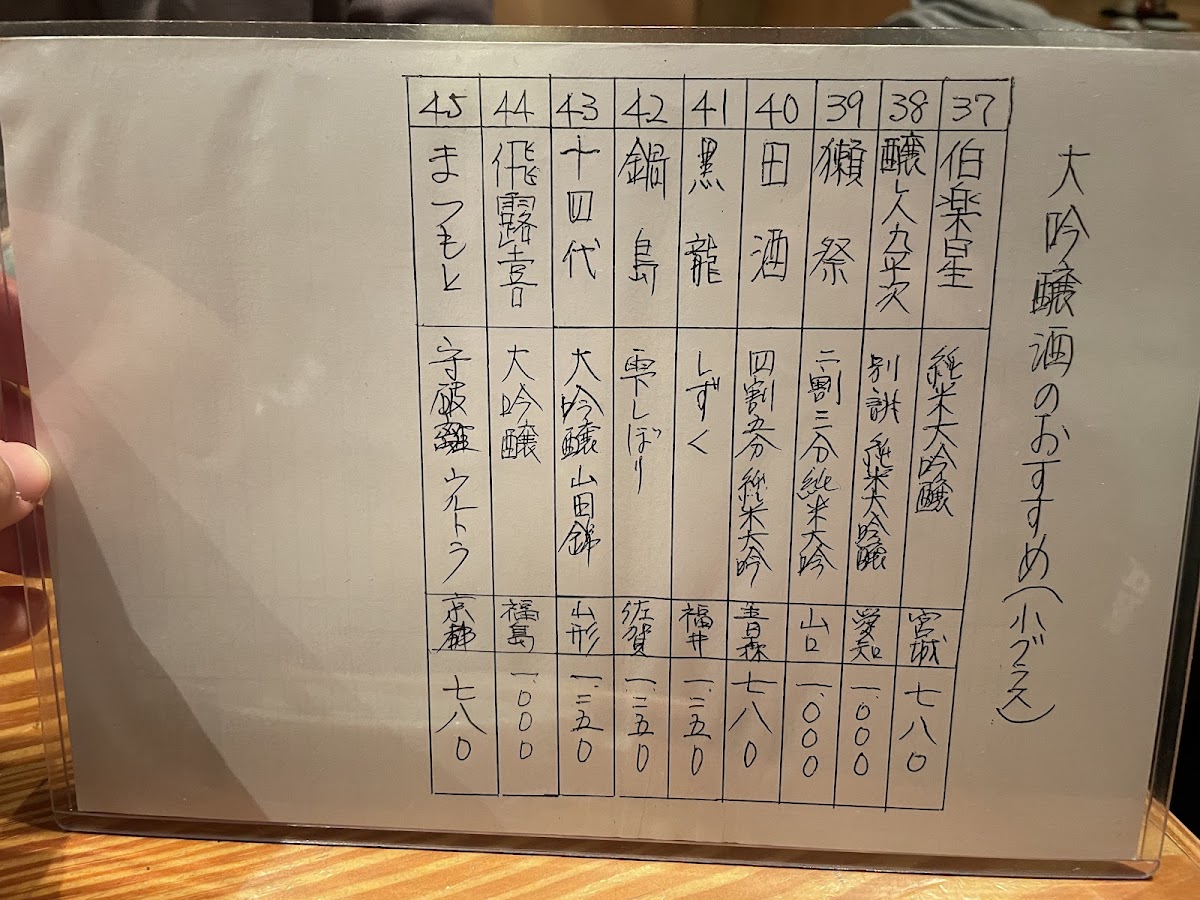 大吟醸酒のおすすめ(小グラス)
37 伯楽星 純米大吟醸 宮城 七八〇
38 醸し人九平次 別誂 純米大吟醸 愛知 一、〇〇〇
39 獺祭 二割三分 純米大吟 山口 一、〇〇〇
40 田酒 四割五分 純米大吟 青森 七八〇
41 黒龍 しずく 福井 一、二五〇
42 鍋島 雫しぼり 佐賀 一、二五〇
43 十四代 大吟醸 山田錦 山形 一、二五〇
44 飛露喜 大吟醸 福島 一、〇〇〇
45 まつもと 守破離 ウルトラ 京都 七八〇